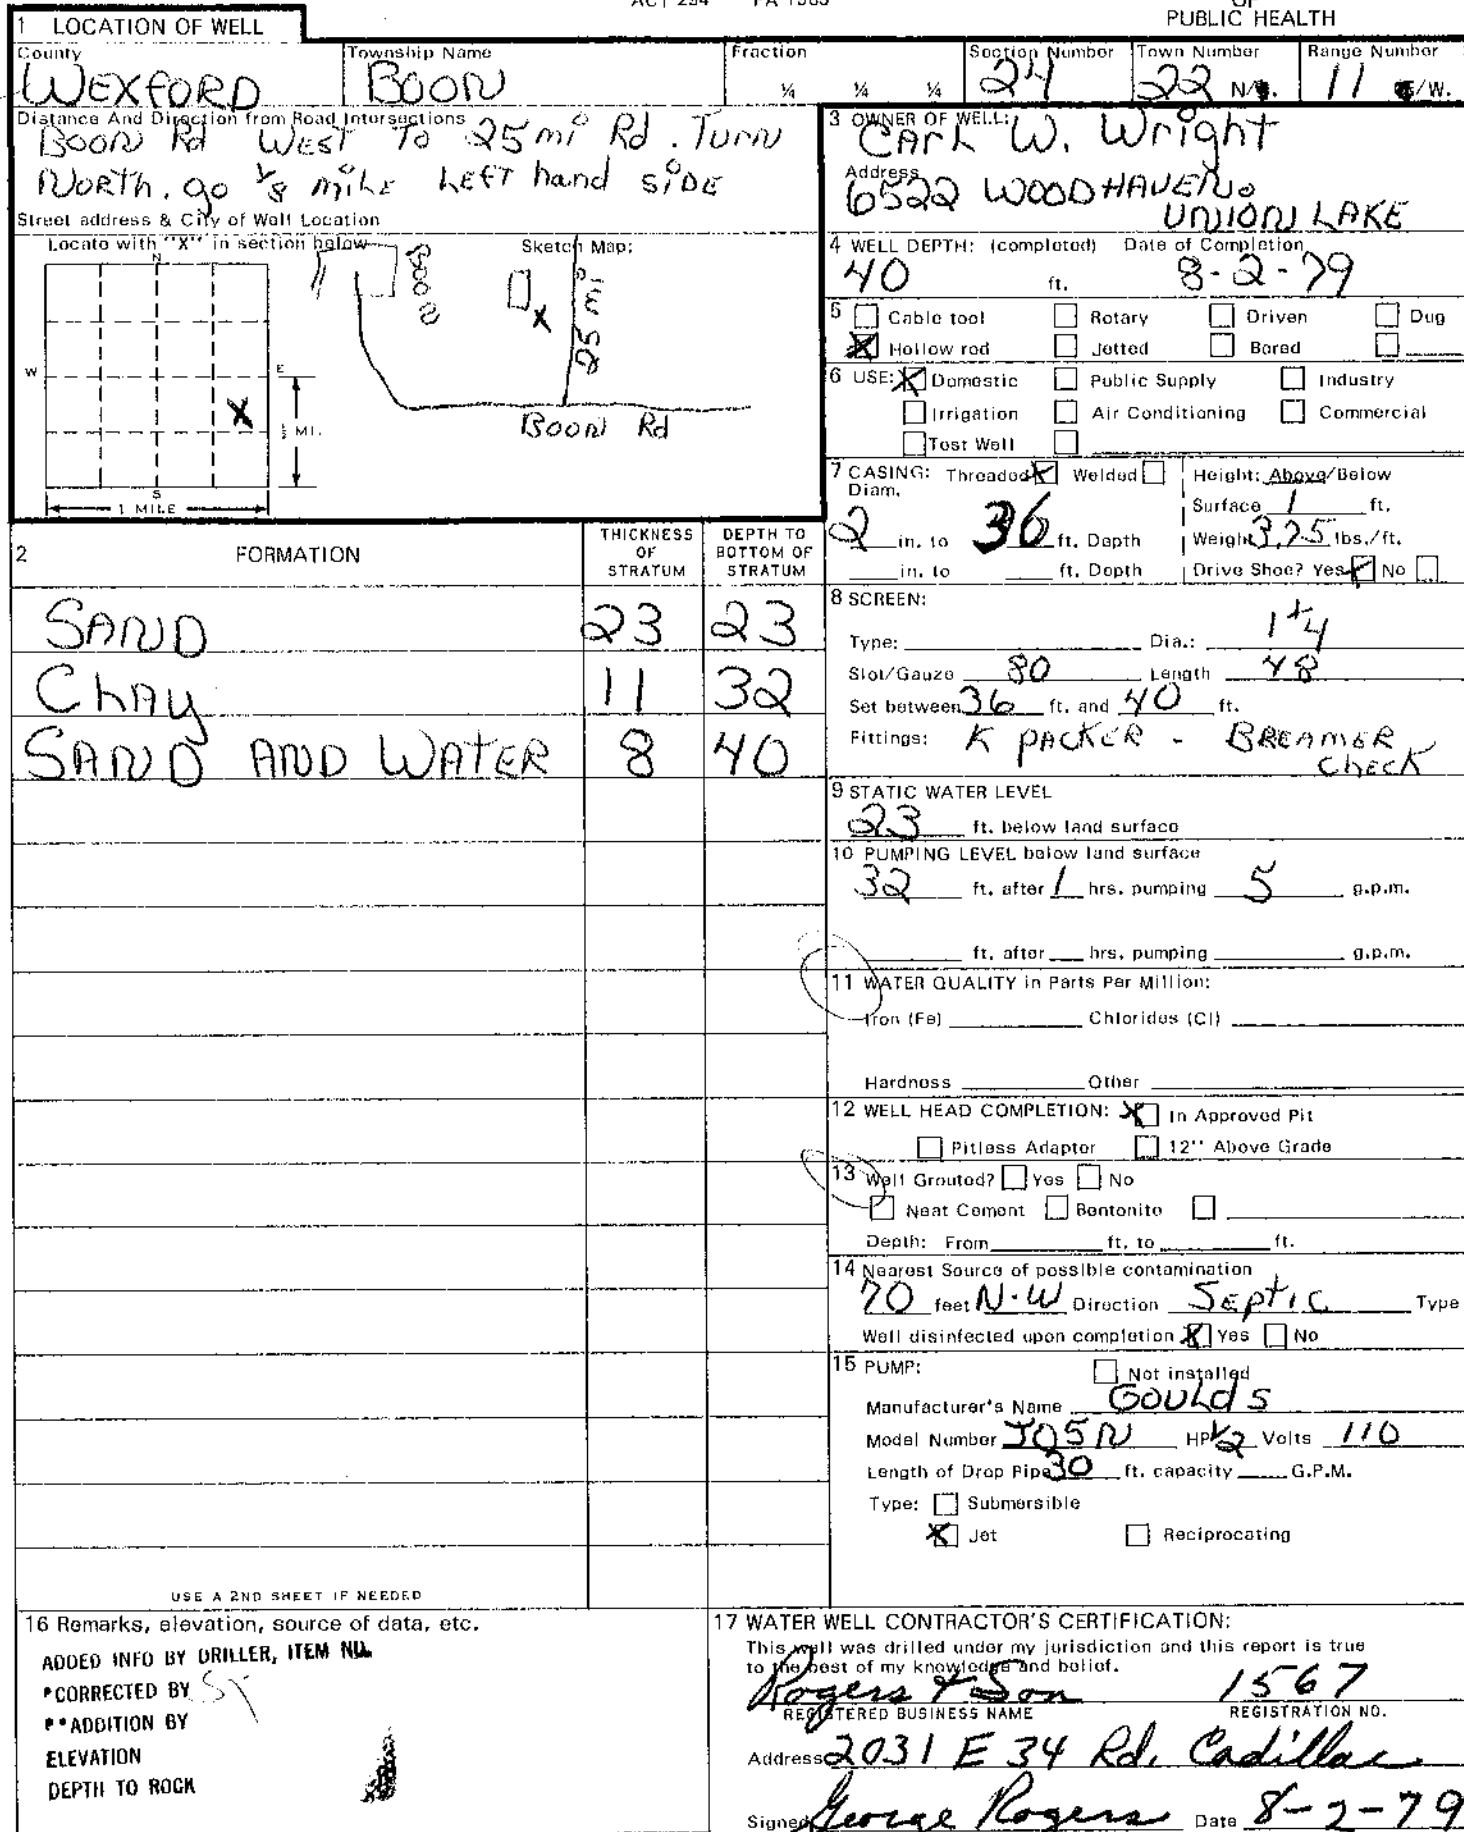 ACT 294 PA 1965
OF
PUBLIC HEALTH
1 LOCATION OF WELL
County
WEXFORD
Township Name
BOON
Fraction
¼ ¼ ¼
Section Number
24
Town Number
22 N/
Range Number
11 /W.
Distance And Direction from Road Intersections
BOON Rd WEST To 25 mi Rd. Turn
NORTH. go 1/8 MILE LEFT hand SIDE
Street address & City of Well Location
Locate with "X" in section below
Sketch Map:
N
W
E
S
½ MI.
1 MILE
X
BOON
X
25 mi
BOON Rd
3 OWNER OF WELL:
CARL W. Wright
Address
6522 WOODHAVEN.
UNION LAKE
4 WELL DEPTH: (completed) Date of Completion
40 ft. 8-2-79
5 Cable tool Rotary Driven Dug
X Hollow rod Jetted Bored
6 USE: X Domestic Public Supply Industry
Irrigation Air Conditioning Commercial
Test Well
7 CASING: Threaded X Welded Height: Above/Below
Diam. Surface 1 ft.
2 in. to 36 ft. Depth Weight 3.75 lbs./ft.
in. to ft. Depth Drive Shoe? Yes X No
2 FORMATION THICKNESS OF STRATUM DEPTH TO BOTTOM OF STRATUM
SAND 23 23
CLAY 11 32
SAND AND WATER 8 40
8 SCREEN:
Type: Dia.: 1 1/4
Slot/Gauze 80 Length 48
Set between 36 ft. and 40 ft.
Fittings: K PACKER - BREAMER
CHECK
9 STATIC WATER LEVEL
23 ft. below land surface
10 PUMPING LEVEL below land surface
32 ft. after 1 hrs. pumping 5 g.p.m.
ft. after hrs. pumping g.p.m.
11 WATER QUALITY in Parts Per Million:
Iron (Fe) Chlorides (Cl)
Hardness Other
12 WELL HEAD COMPLETION: X In Approved Pit
Pitless Adaptor 12" Above Grade
13 Well Grouted? Yes No
Neat Cement Bentonite
Depth: From ft. to ft.
14 Nearest Source of possible contamination
70 feet N-W Direction SEPTIC Type
Well disinfected upon completion X Yes No
15 PUMP: Not installed
Manufacturer's Name GOULDS
Model Number J05N HP 1/2 Volts 110
Length of Drop Pipe 30 ft. capacity G.P.M.
Type: Submersible
X Jet Reciprocating
USE A 2ND SHEET IF NEEDED
16 Remarks, elevation, source of data, etc.
ADDED INFO BY DRILLER, ITEM NO.
*CORRECTED BY
**ADDITION BY
ELEVATION
DEPTH TO ROCK
17 WATER WELL CONTRACTOR'S CERTIFICATION:
This well was drilled under my jurisdiction and this report is true
to the best of my knowledge and belief.
Rogers & Son 1567
REGISTERED BUSINESS NAME REGISTRATION NO.
Address 2031 E 34 Rd. Cadillac
Signed George Rogers Date 8-2-79